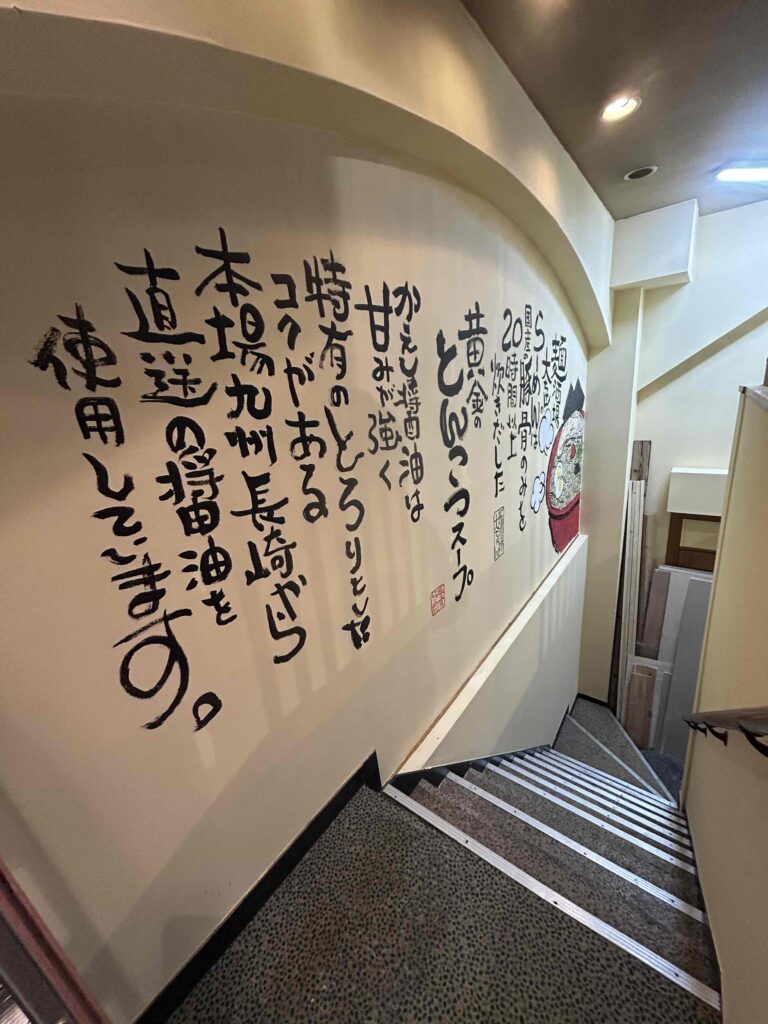 麺酒場
らーめんは
国産の豚骨のみを
20時間以上
炊きだした
黄金の
とんこつスープ
かえし醤油は
甘みが強く
特有のとろりとした
コクがある
本場九州長崎から
直送の醤油を
使用しています。